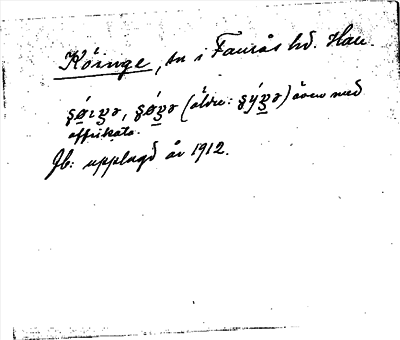 Köinge, sn i Faurås hd. Hall.
(äldre: ) även med
affrikata.
Jb: upplagd år 1912.